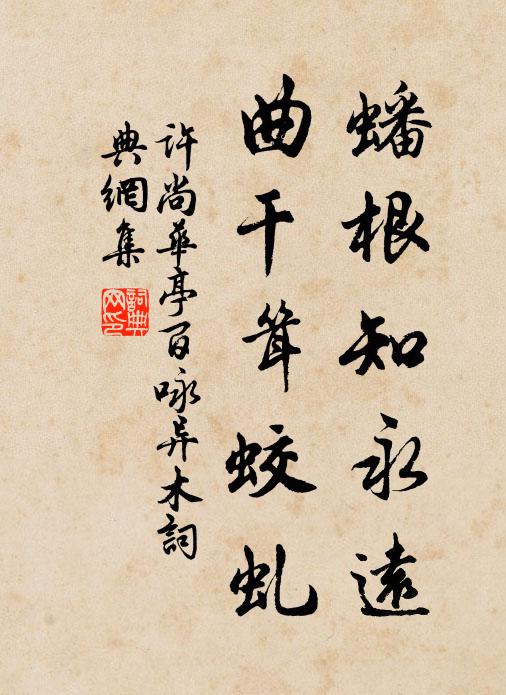 蟠根知永遠
曲干耸蛟虬
许尚華亭百咏异木詞
典網集
詞典网印